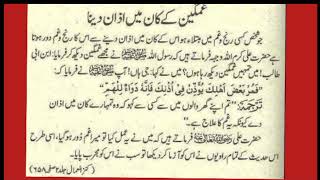 غمگین کے کان میں اذان دینا
جو شخص کسی رنج و غم میں مبتلا ہو اس کے کان میں اذان دینے سے اس کا رنج و غم دور ہوتا
ہے حضرت علی کرم اللہ وجہہ فرماتے ہیں کہ رسول اللہ ﷺ نے مجھے غمگین دیکھ کر فرمایا: ابن ابی
طالب! میں تمہیں غمگین دیکھ رہا ہوں؟ میں نے کہا: جی ہاں! آپ ﷺ نے فرمایا کہ:
"فَمُرْ بَعْضَ أَهْلِكَ يُؤَذِّنُ فِي أُذُنِكَ فَإِنَّهُ دَوَاءٌ لِلْهَمِّ"
ترجمہ: "تم اپنے گھر والوں میں سے کسی سے کہو کہ وہ تمہارے کان میں اذان
دے کیونکہ یہ غم کا علاج ہے۔"
حضرت علی فرماتے ہیں میں نے یہ عمل کیا تو میرا غم دور ہو گیا، اسی طرح
اس حدیث کے تمام راویوں نے اس کو آزما کر دیکھا تو سب نے اس کو مجرب پایا۔
(کنز العمال جلد ۲ صفحہ ۶۵۸)